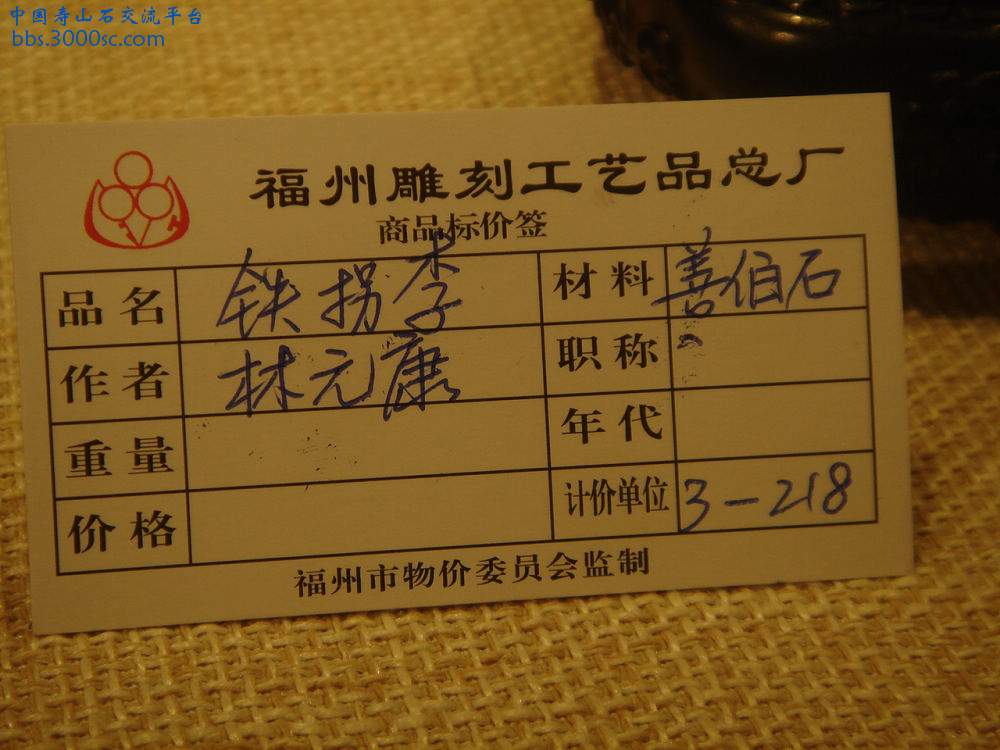 中国寿山石交流平台
bbs.3000sc.com
福州雕刻工艺品总厂
商品标价签
品名 铁拐李 材料 善伯石
作者 林元康 职称
重量 年代
价格 计价单位 3-218
福州市物价委员会监制